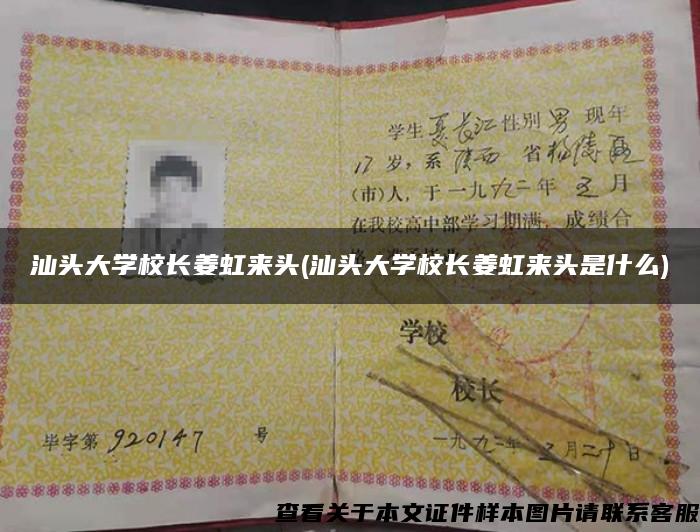 学生夏长江性别男现年
17岁，系陕西省杨陵区
(市)人，于一九九二年五月
在我校高中部学习期满，成绩合
汕头大学校长姜虹来头(汕头大学校长姜虹来头是什么)
学校
校长
毕字第920147号
一九九二年五月二十日
查看关于本文证件样本图片请联系客服